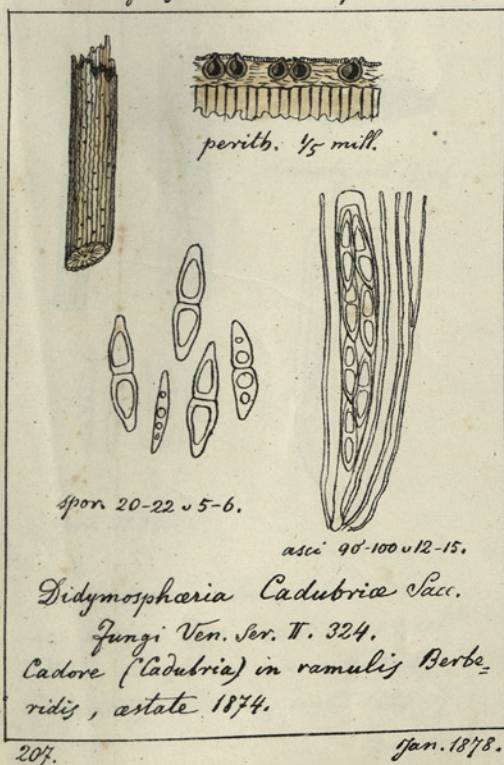 perith. 1/5 mill.
spor. 20-22 ᴗ 5-6.
asci 90-100 ᴗ 12-15.
Didymosphæria Cadubriæ Sacc.
Fungi Ven. Ser. II. 324.
Cadore (Cadubria) in ramulis Berbe=
ridis, æstate 1874.
207. Jan. 1878.